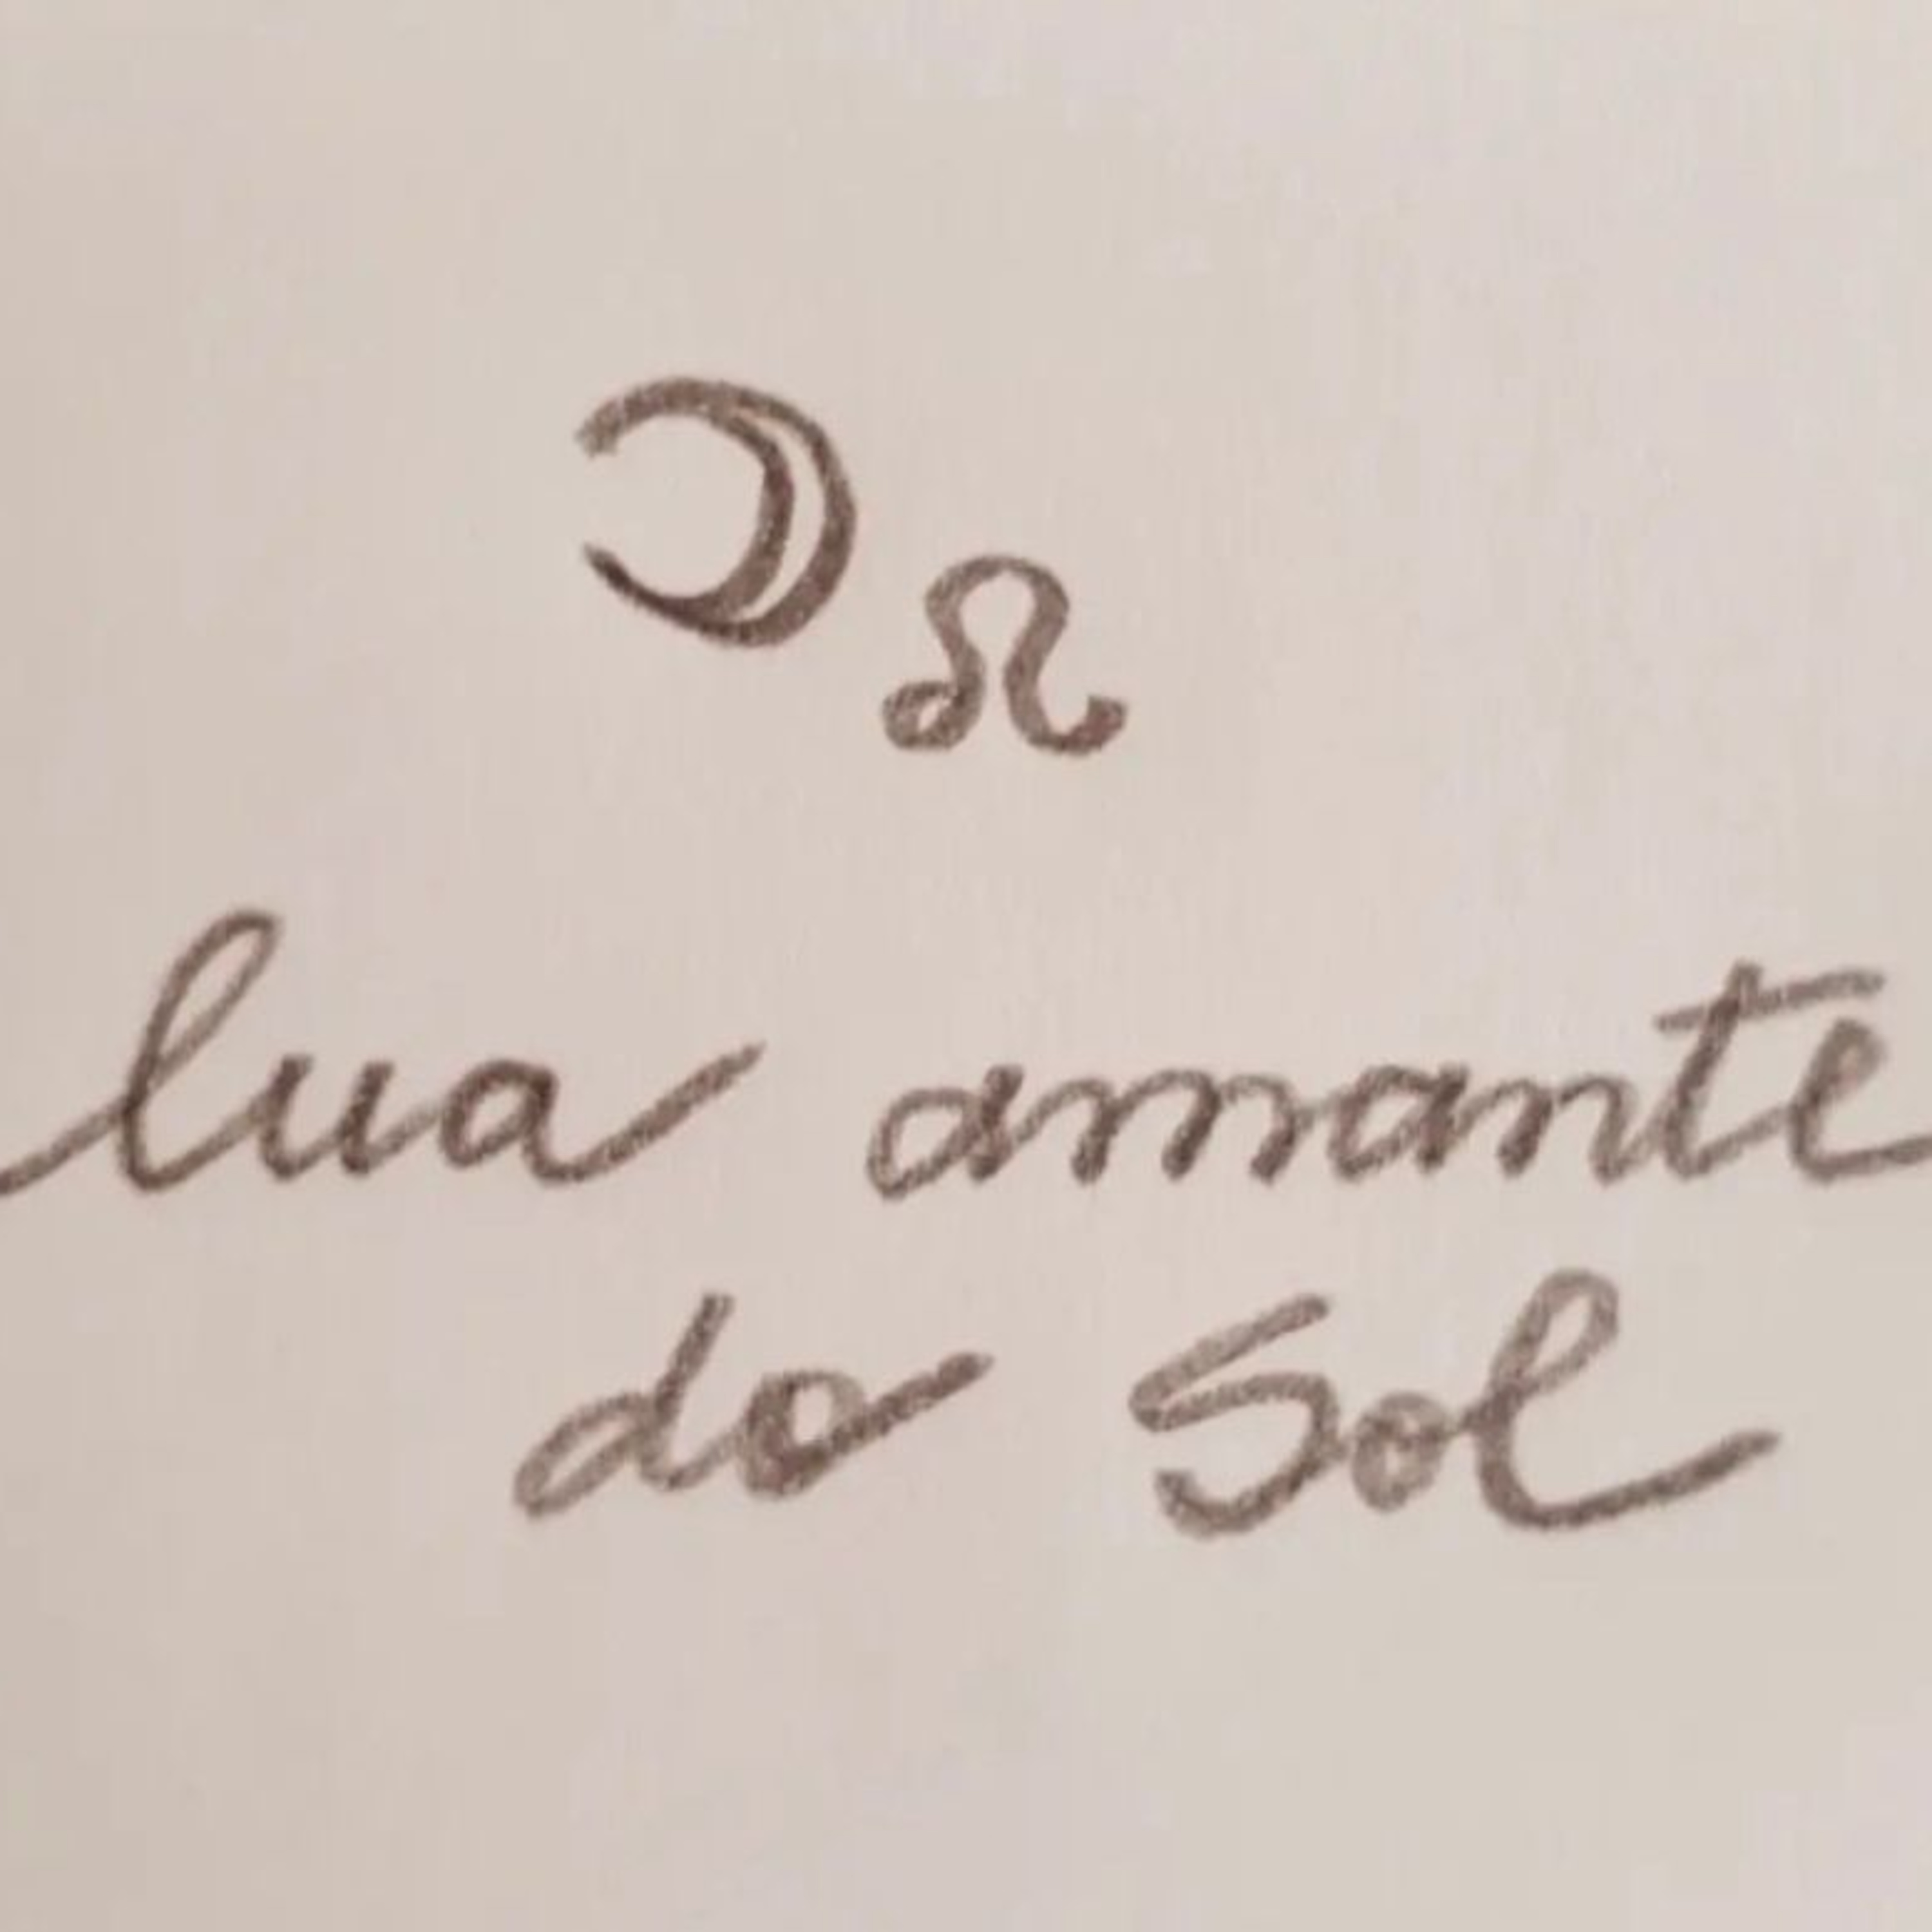 ☽ ♌
lua amante
do Sol